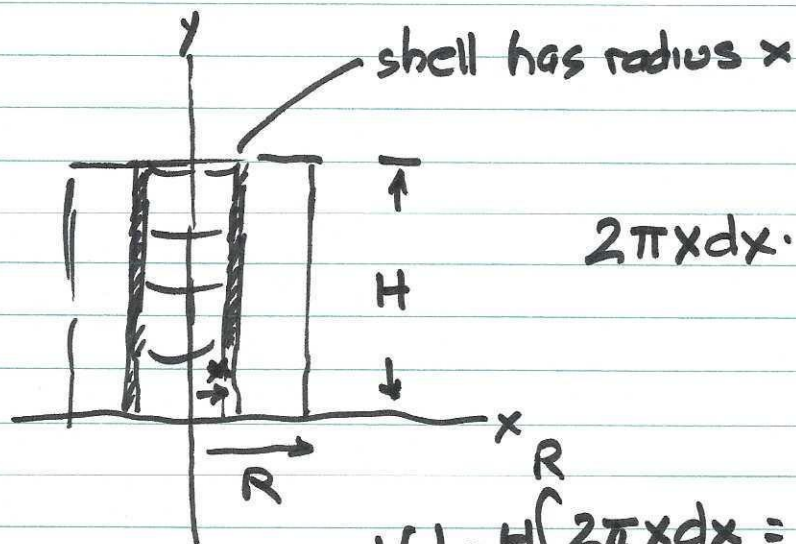 y
shell has radius x
2πxdx·
H
x
x
R
R
H∫2πxdx =